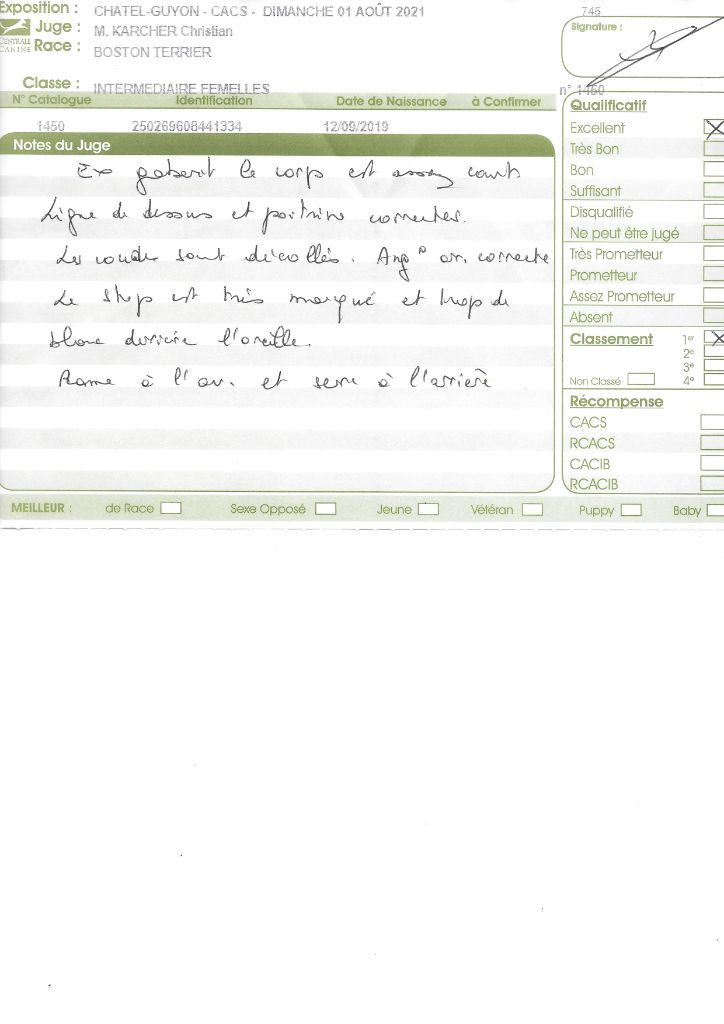 Exposition : CHATEL-GUYON - CACS - DIMANCHE 01 AOÛT 2021
745
Juge : M. KARCHER Christian
Signature :
CENTRALE CANINE
Race : BOSTON TERRIER
Classe : INTERMEDIAIRE FEMELLES
n° 1450
N° Catalogue Identification Date de Naissance à Confirmer
1450 250269608441334 12/09/2019
Notes du Juge
Ex gabarit le corps est assez court
Ligne de dessus et poitrine correctes.
Les coudes sont décollés. Ang° ar. correcte
Le stop est très marqué et trop de
blanc derrière l'oreille.
Rame à l'av. et serre à l'arrière
Qualificatif
Excellent
Très Bon
Bon
Suffisant
Disqualifié
Ne peut être jugé
Très Prometteur
Prometteur
Assez Prometteur
Absent
Classement 1er
2e
3e
Non Classé 4e
Récompense
CACS
RCACS
CACIB
RCACIB
MEILLEUR : de Race Sexe Opposé Jeune Vétéran Puppy Baby